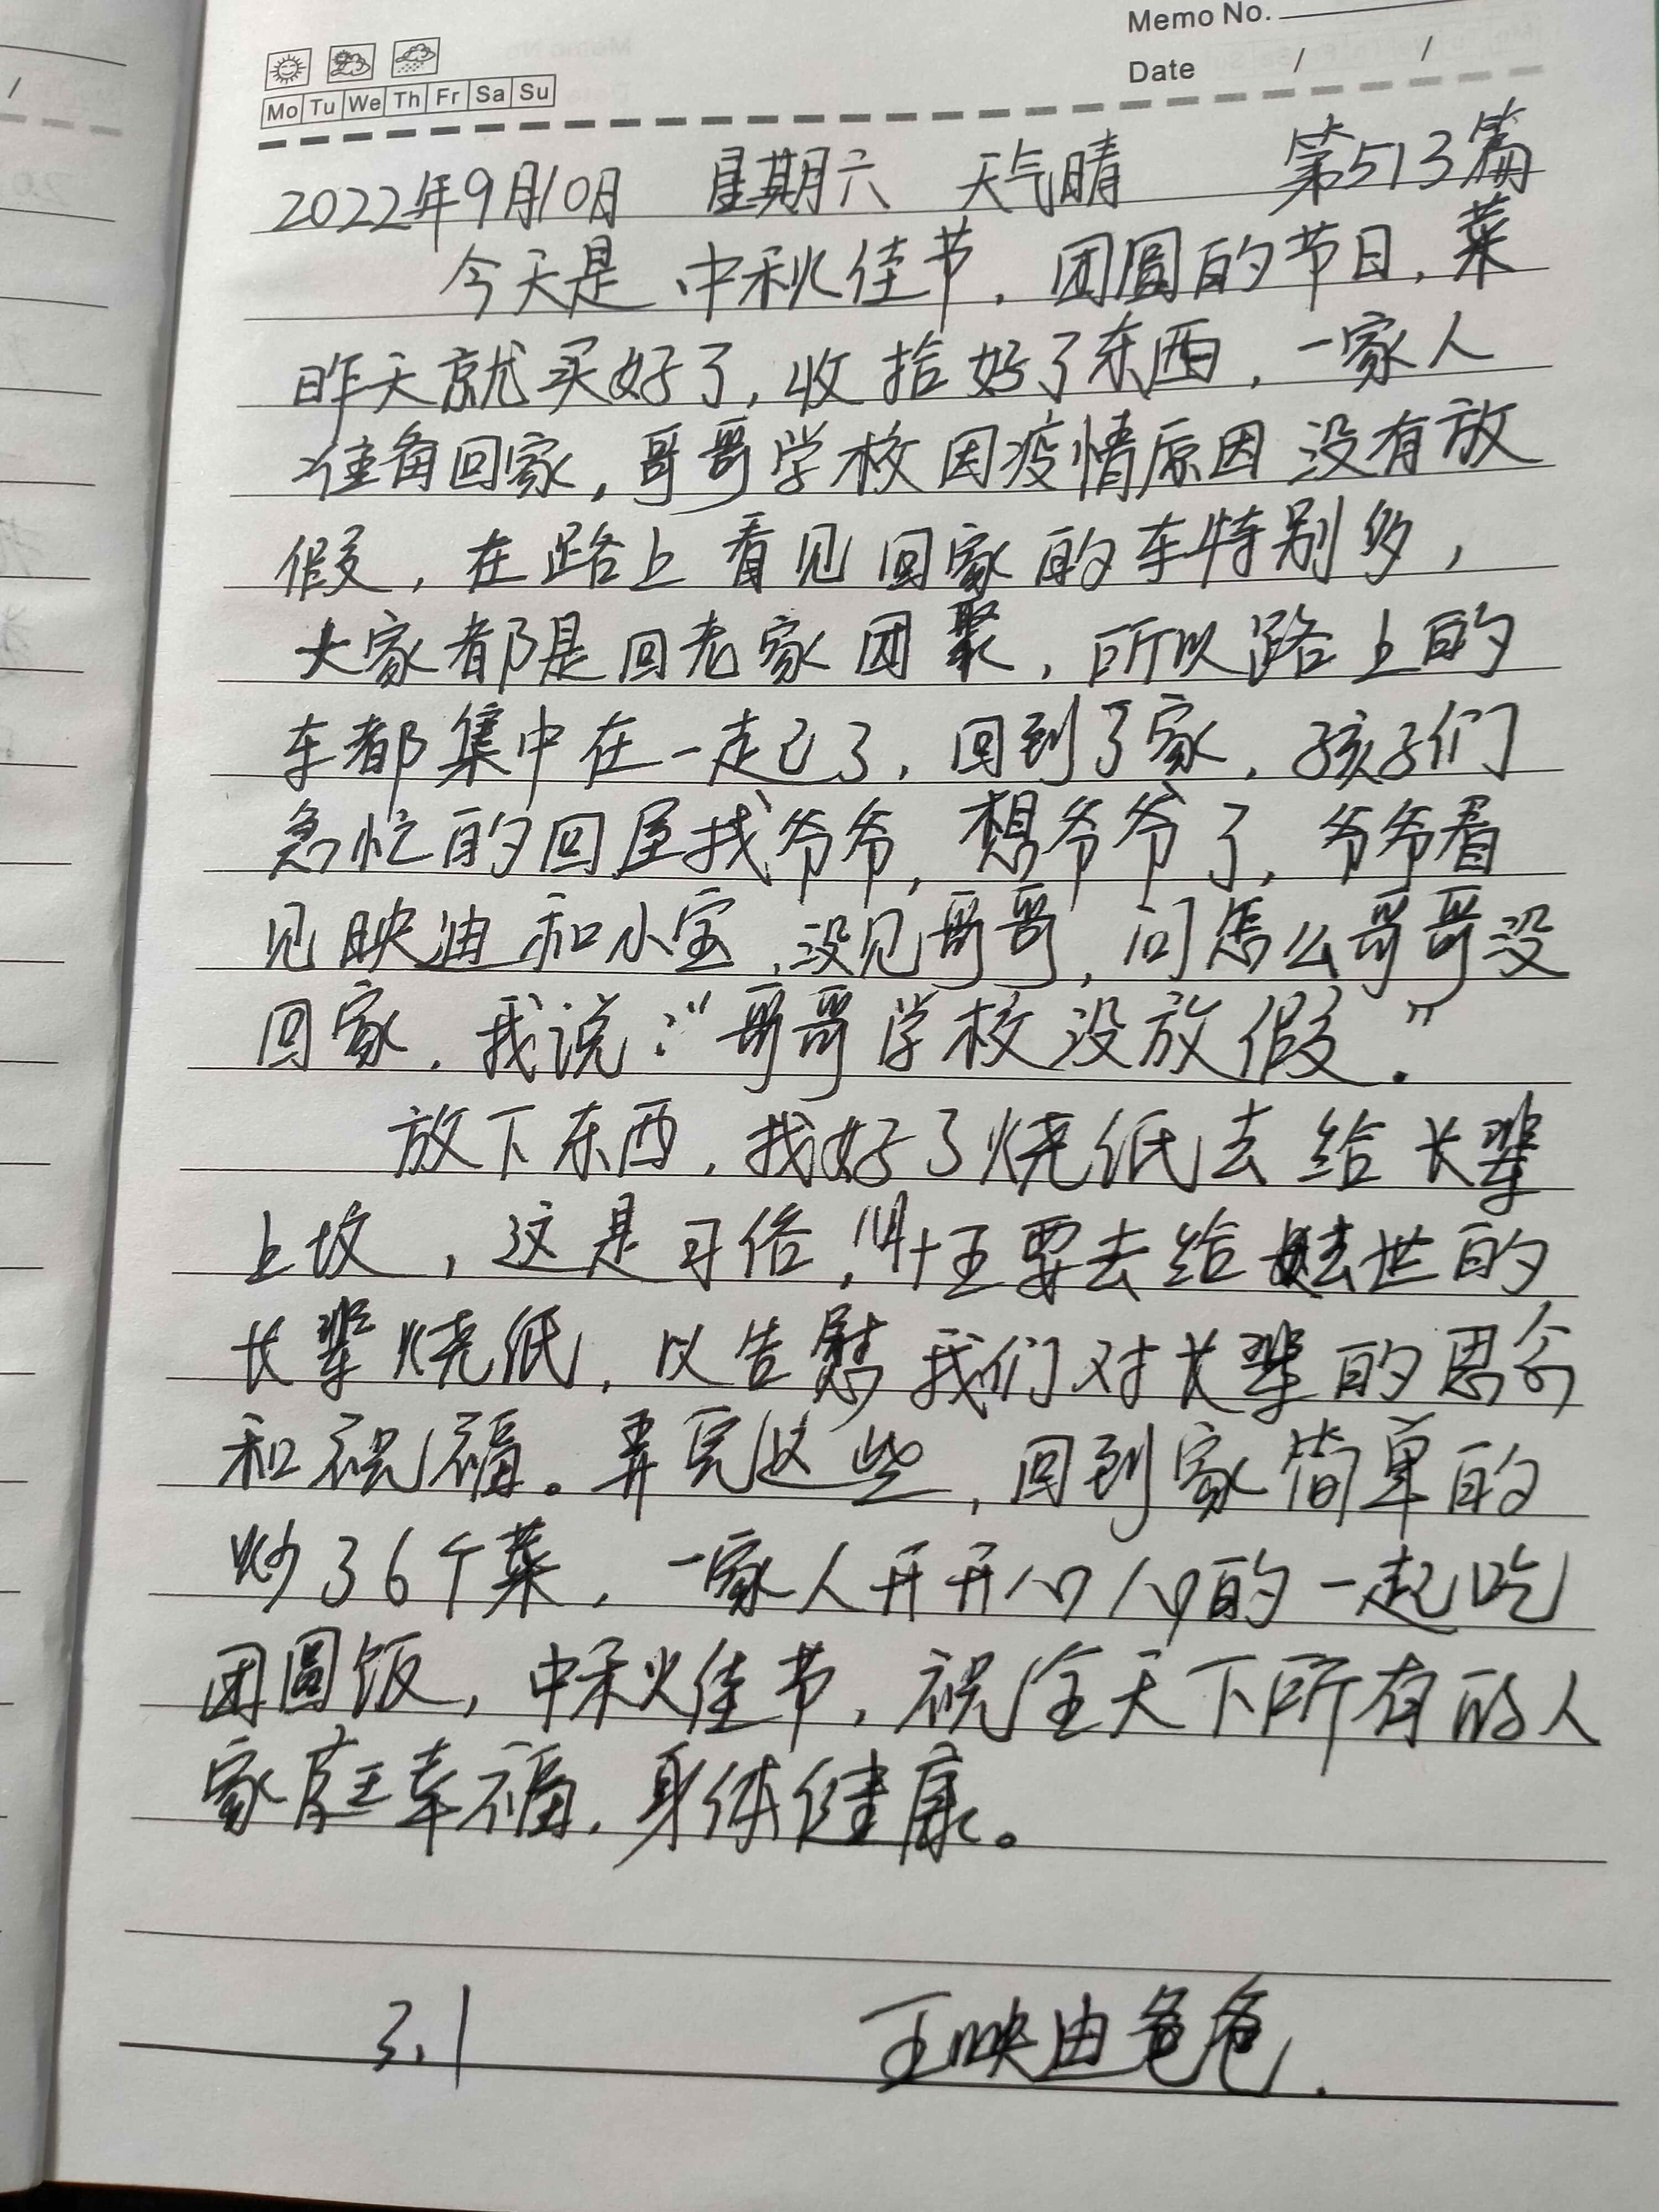 Memo No.
Mo Tu We Th Fr Sa Su
Date / /
2022年9月10日 星期六 天气晴 第513篇
今天是中秋佳节，团圆的节日，菜
昨天就买好了，收拾好了东西，一家人
准备回家，哥哥学校因疫情原因没有放
假，在路上看见回家的车特别多，
大家都是回老家团聚，所以路上的
车都集中在一起了，回到了家，孩子们
急忙的回屋找爷爷，想爷爷了，爷爷看
见映迪和小宝，没见哥哥，问怎么哥哥没
回家，我说：“哥哥学校没放假。”
放下东西，找好了烧纸去给长辈
上坟，这是习俗，八月十五要去给去世的
长辈烧纸，以告慰我们对长辈的思念
和祝福。弄完这些，回到家简单的
炒了6个菜，一家人开开心心的一起吃
团圆饭，中秋佳节，祝全天下所有的人
家庭幸福，身体健康。
3.1 王映迪爸爸.